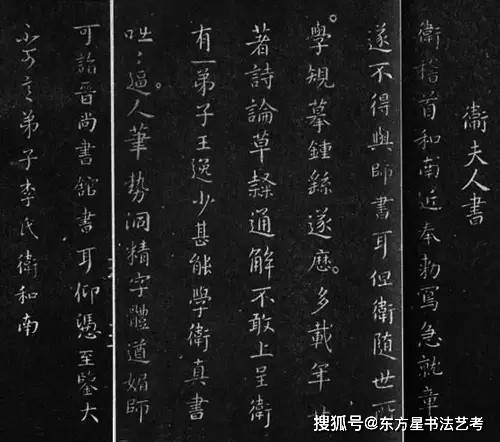 衞夫人書
衛稽首和南近奉勑寫急就章
遂不得與師書耳但衛隨世所
學規摹鍾繇遂歷多載年廿
著詩論草隸通解不敢上呈衛
有一弟子王逸少甚能學衛真書
咄〻逼人筆勢洞精字體遒媚師
可詣晉尚書館書耳仰憑至鑒大
不可言弟子李氏衛和南
搜狐号@东方星书法艺考